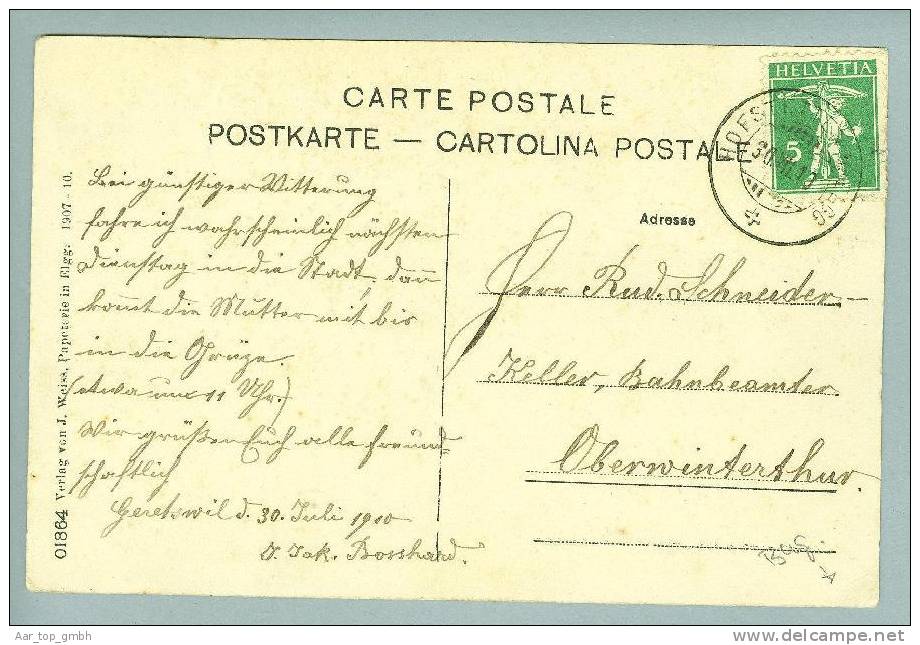 CARTE POSTALE
POSTKARTE — CARTOLINA POSTALE
HELVETIA
5
Bei günstiger Witterung
fahre ich wahrscheinlich nächsten
Dienstag in die Stadt, dann
kommt die Mutter mit bis
in die Grüze.
(etwa um 11 Uhr.)
Wir grüßen Euch alle freund-
schaftlich
Geretswil d. 30. Juli 1910
J. Jak. Bosshard.
Adresse
Herr Rud. Schneider-
Keller, Bahnbeamter
Oberwinterthur.
01864 Verlag von J. Weiss, Papeterie in Elgg. 1907 - 10.
Aar_top_gmbh
www.delcampe.net